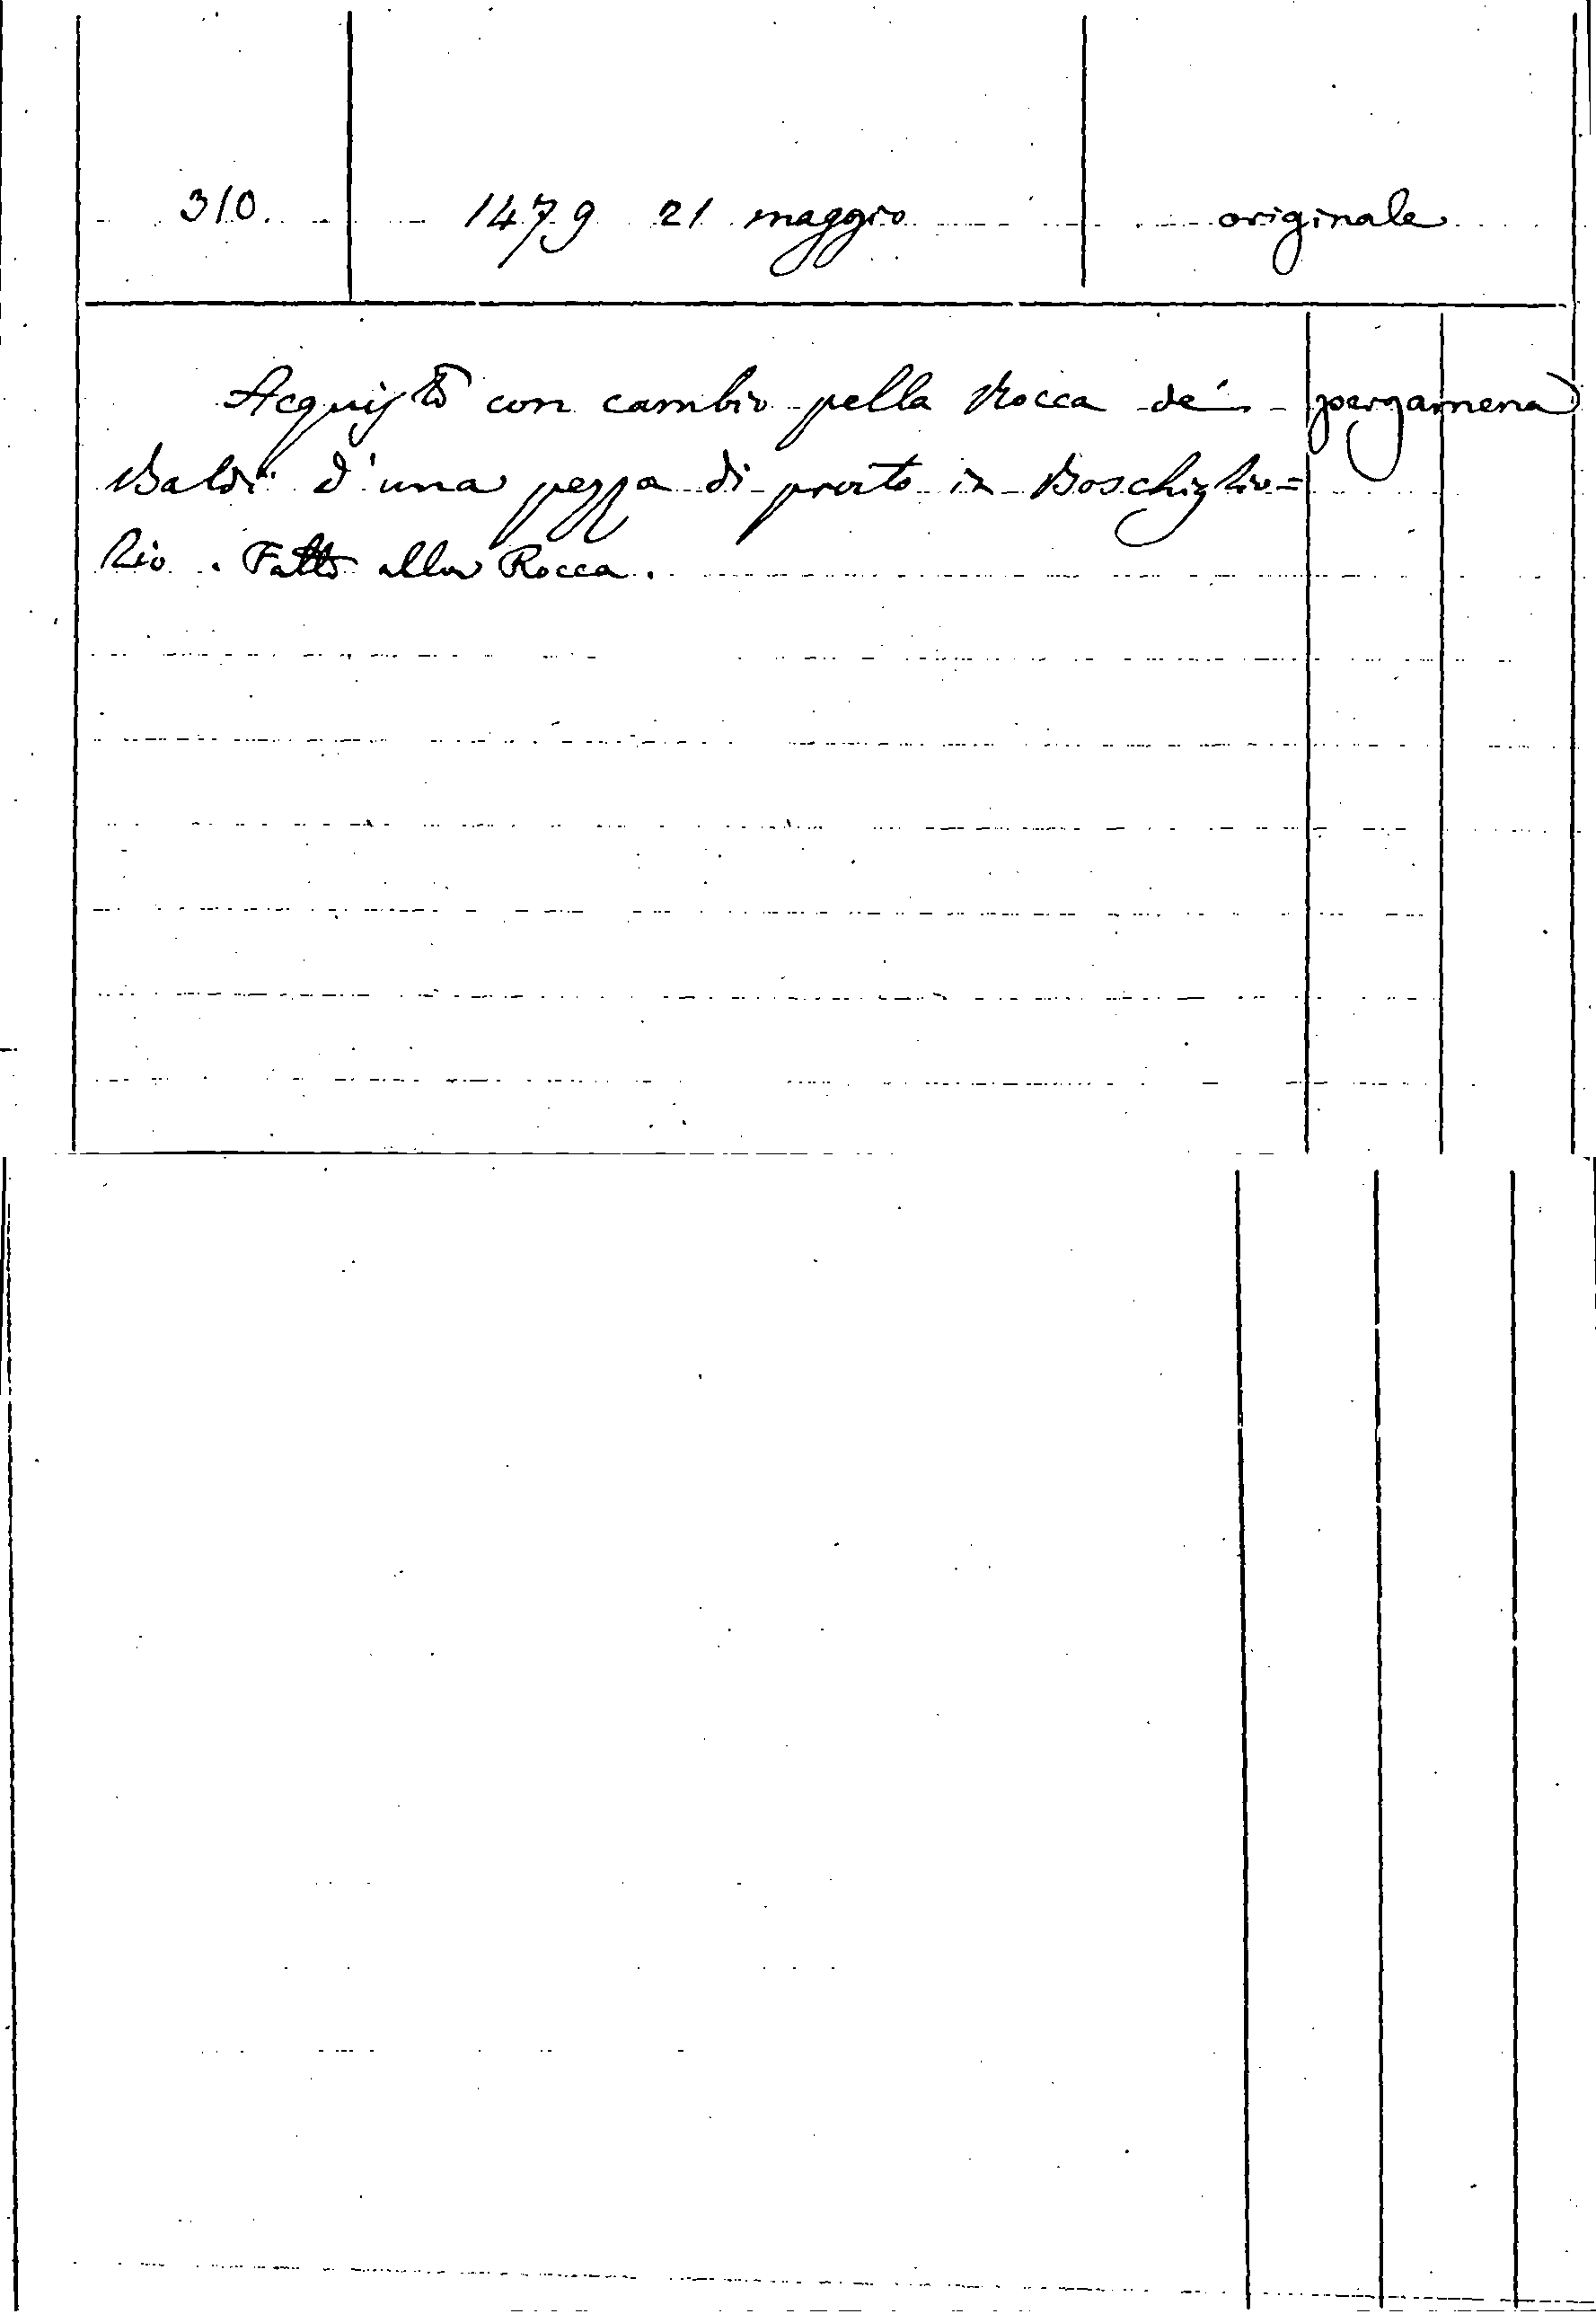 310. 1479 21 maggio originale
Acquisto con cambio pella Rocca de' pergamena
Baldi d'una pezza di prato in Boschiglio=
lio. Fatto alla Rocca.